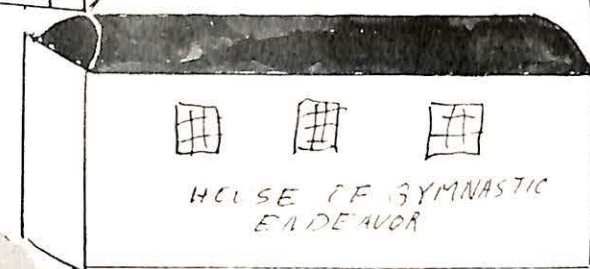 HOUSE OF GYMNASTIC
ENDEAVOR